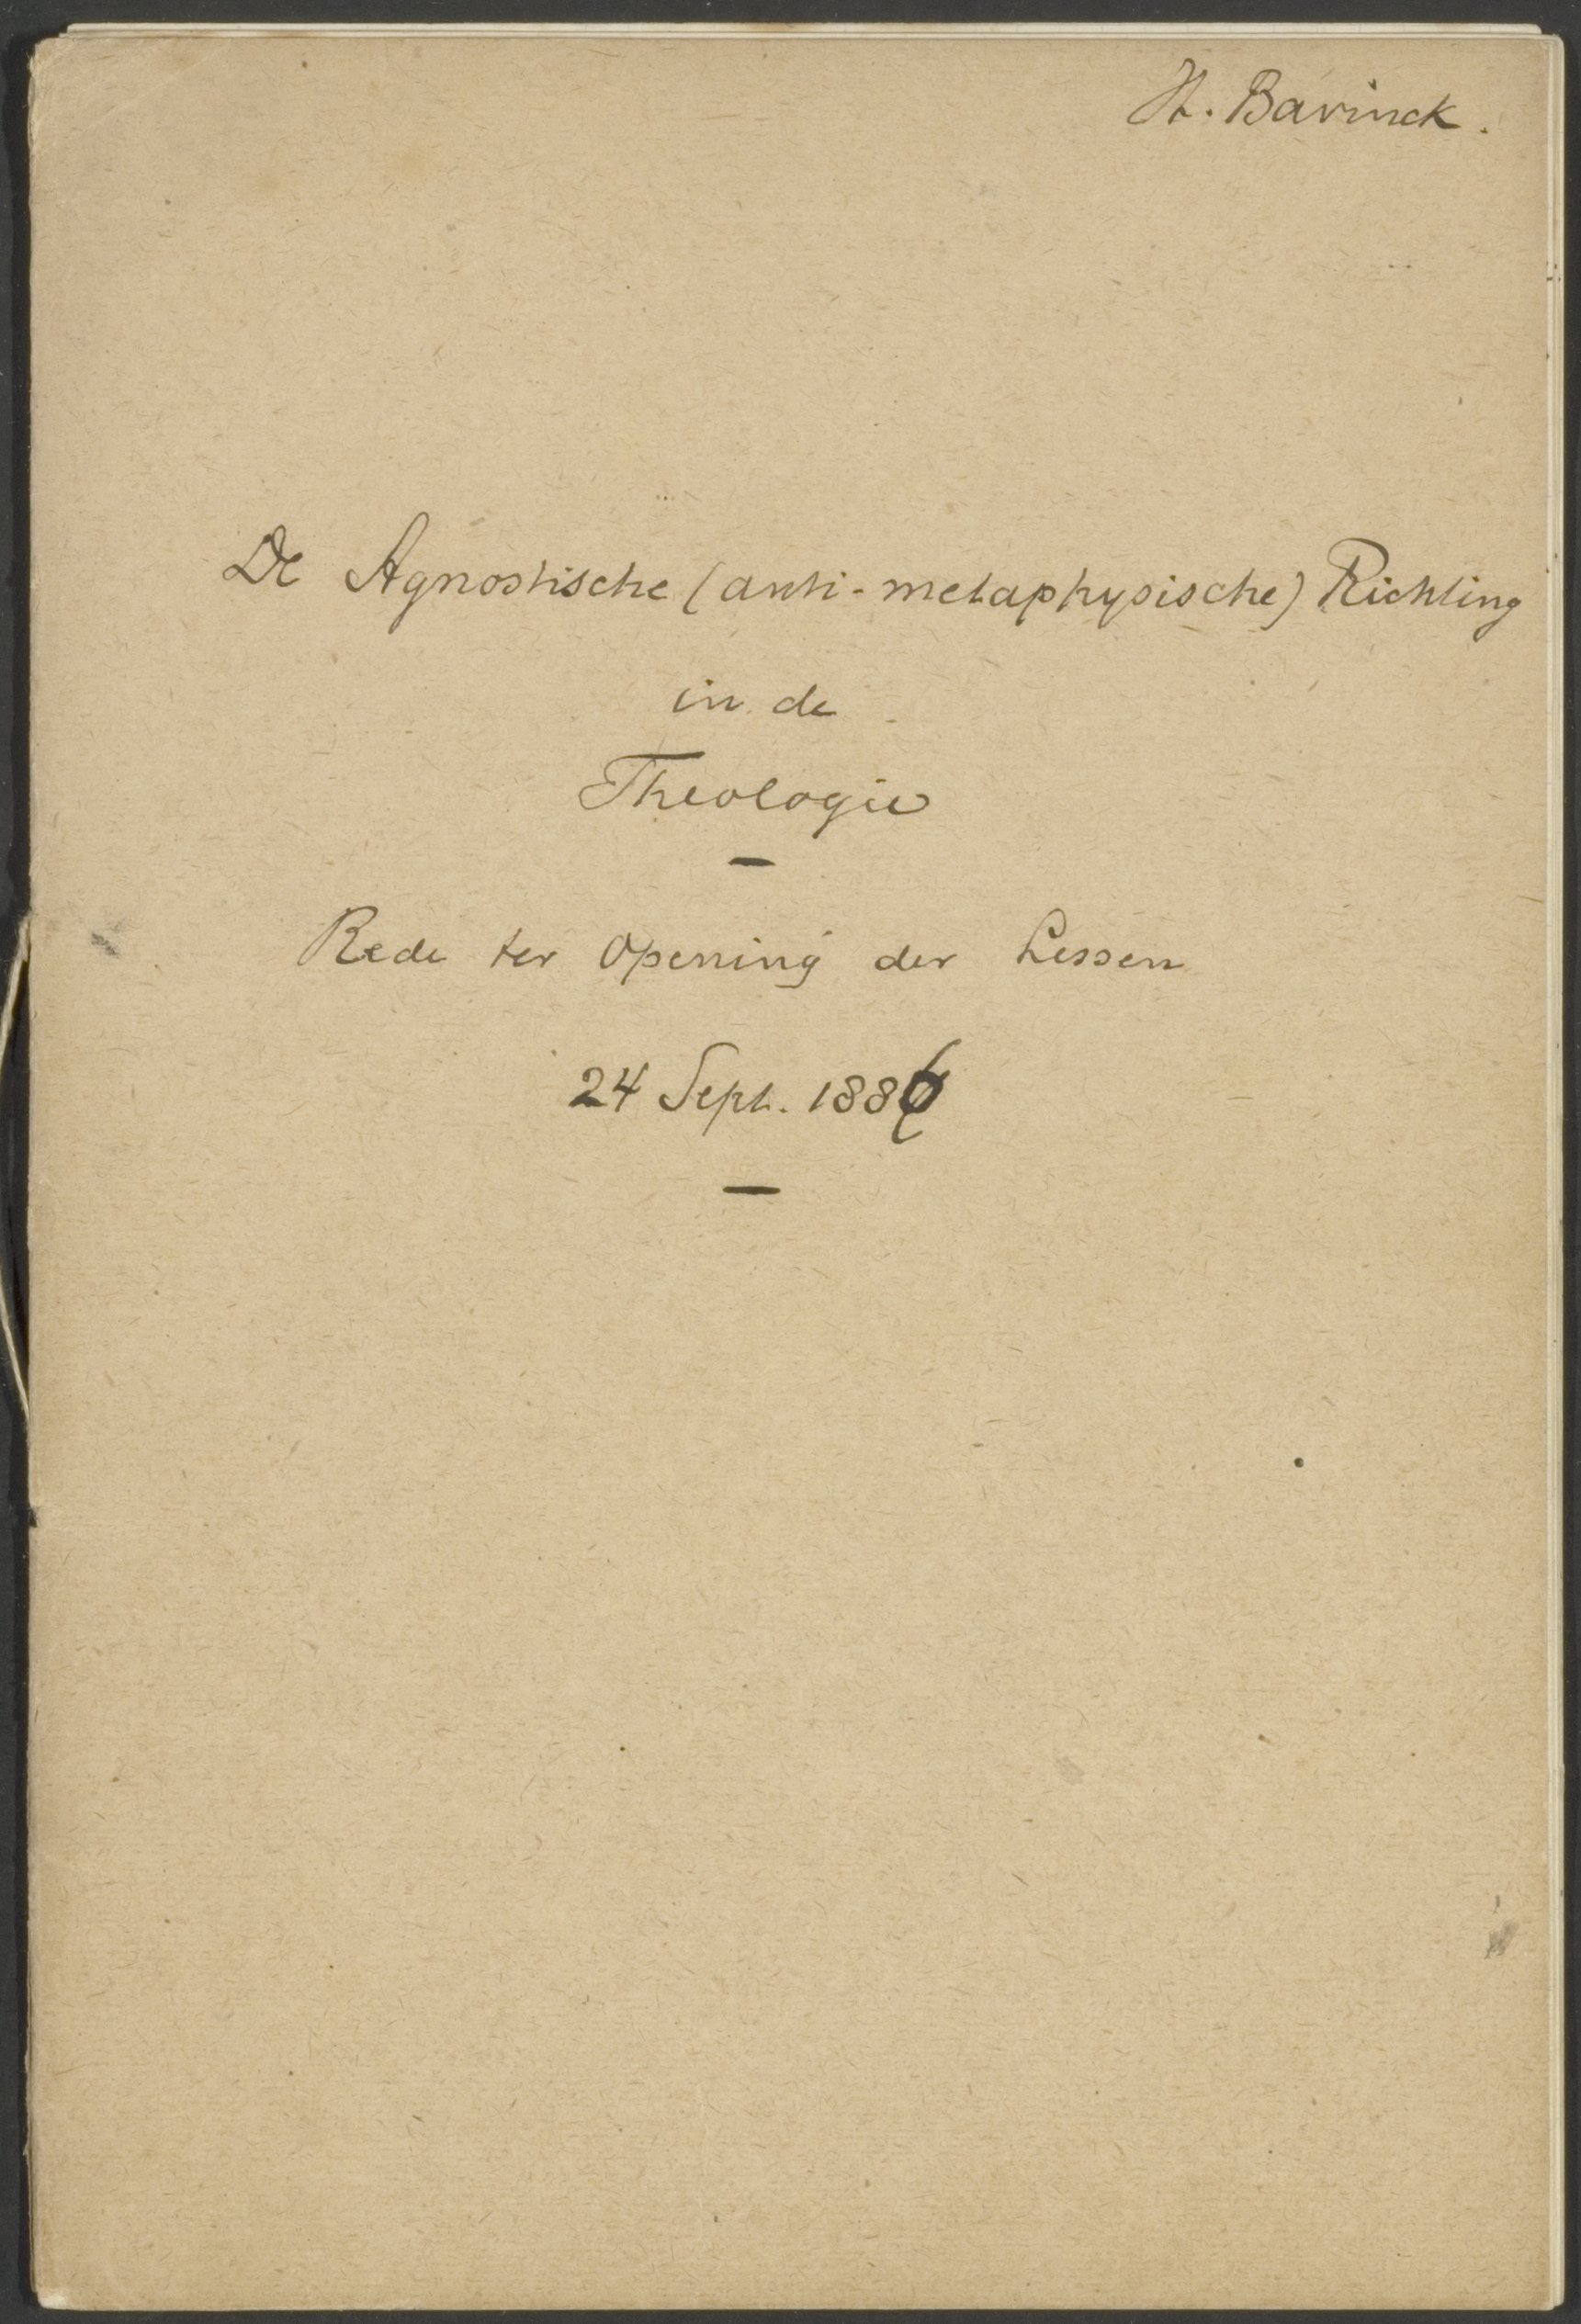 H. Bavinck.
De Agnostische (anti-metaphysische) Richting
in de
Theologie
—
Rede ter Opening der Lessen
24 Sept. 1886
—